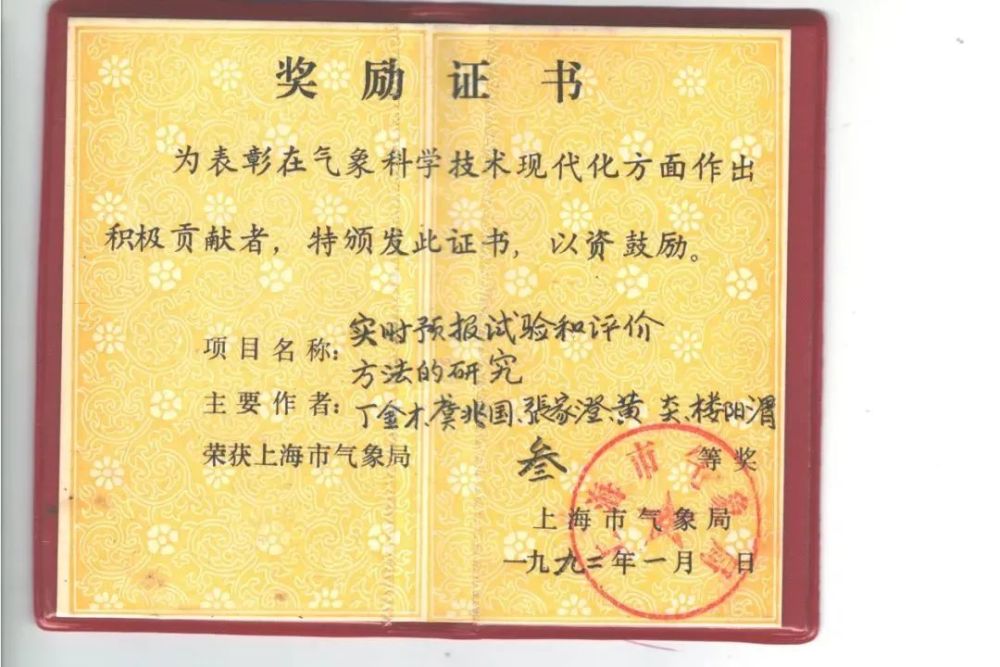 奖励证书
为表彰在气象科学技术现代化方面作出
积极贡献者，特颁发此证书，以资鼓励。
项目名称：实时预报试验和评价
方法的研究
主要作者：丁金才、虞兆国、張家澄、黄炎、楼阳渭
荣获上海市气象局 叁 等奖
上海市气象局
一九九二年一月 日
上海市气象局